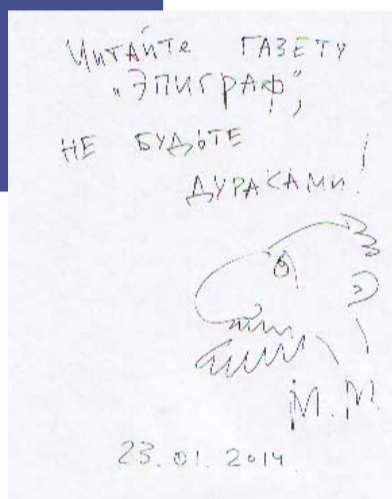 Читайте ГАЗЕТУ
„ЭПИГРАФ",
НЕ БУДЬТЕ
ДУРАКАМИ!
М.М.
23.01.2014